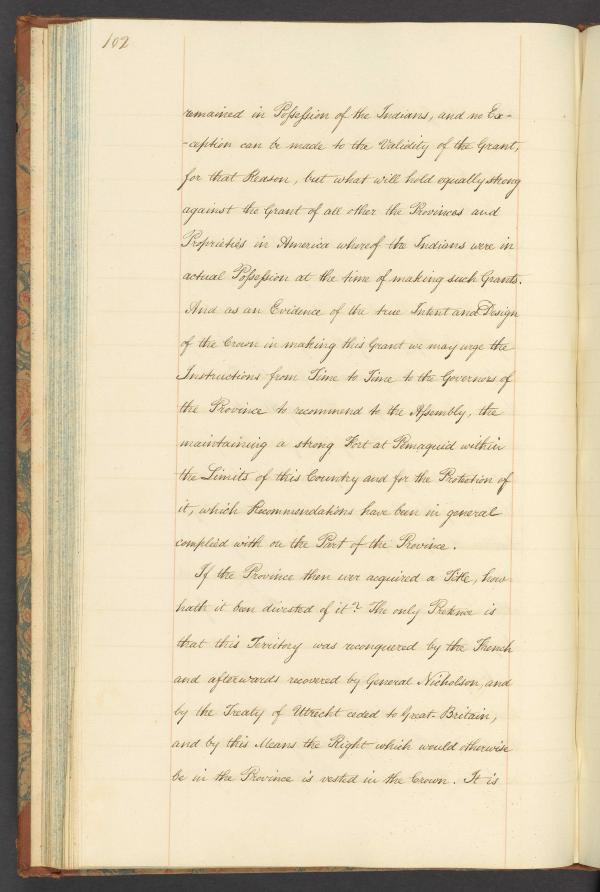 102
remained in Possession of the Indians, and no Ex-
-ception can be made to the Validity of the Grant,
for that Reason, but what will hold equally strong
against the Grant of all other the Provinces and
Proprieties in America whereof the Indians were in
actual Possession at the time of making such Grants.
And as an Evidence of the true Intent and Design
of the Crown in making this Grant we may urge the
Instructions from Time to Time to the Governors of
the Province to recommend to the Assembly, the
maintaining a strong Fort at Pemaquid within
the Limits of this Country and for the Protection of
it, which Recommendations have been in general
complied with on the Part of the Province.
If the Province then ever acquired a Title, how
hath it been divested of it? The only Pretence is
that this Territory was reconquered by the French
and afterwards recovered by General Nicholson, and
by the Treaty of Utrecht ceded to Great-Britain,
and by this Means the Right which would otherwise
be in the Province is vested in the Crown. It is